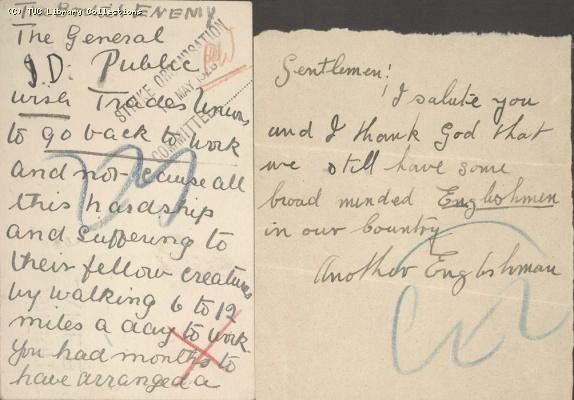 (C) TUC Library Collections
ENEMY
The General
Public
wish Trades Unions
to go back to work
and not cause all
this hardship
and suffering to
their fellow creatures
by walking 6 to 12
miles a day to work.
You had months to
have arranged a
STRIKE ORGANISATION
MAY 1926
COMMITTEE
Gentlemen!
I salute you
and I thank God that
we still have some
broad minded Englishmen
in our Country
Another Englishman